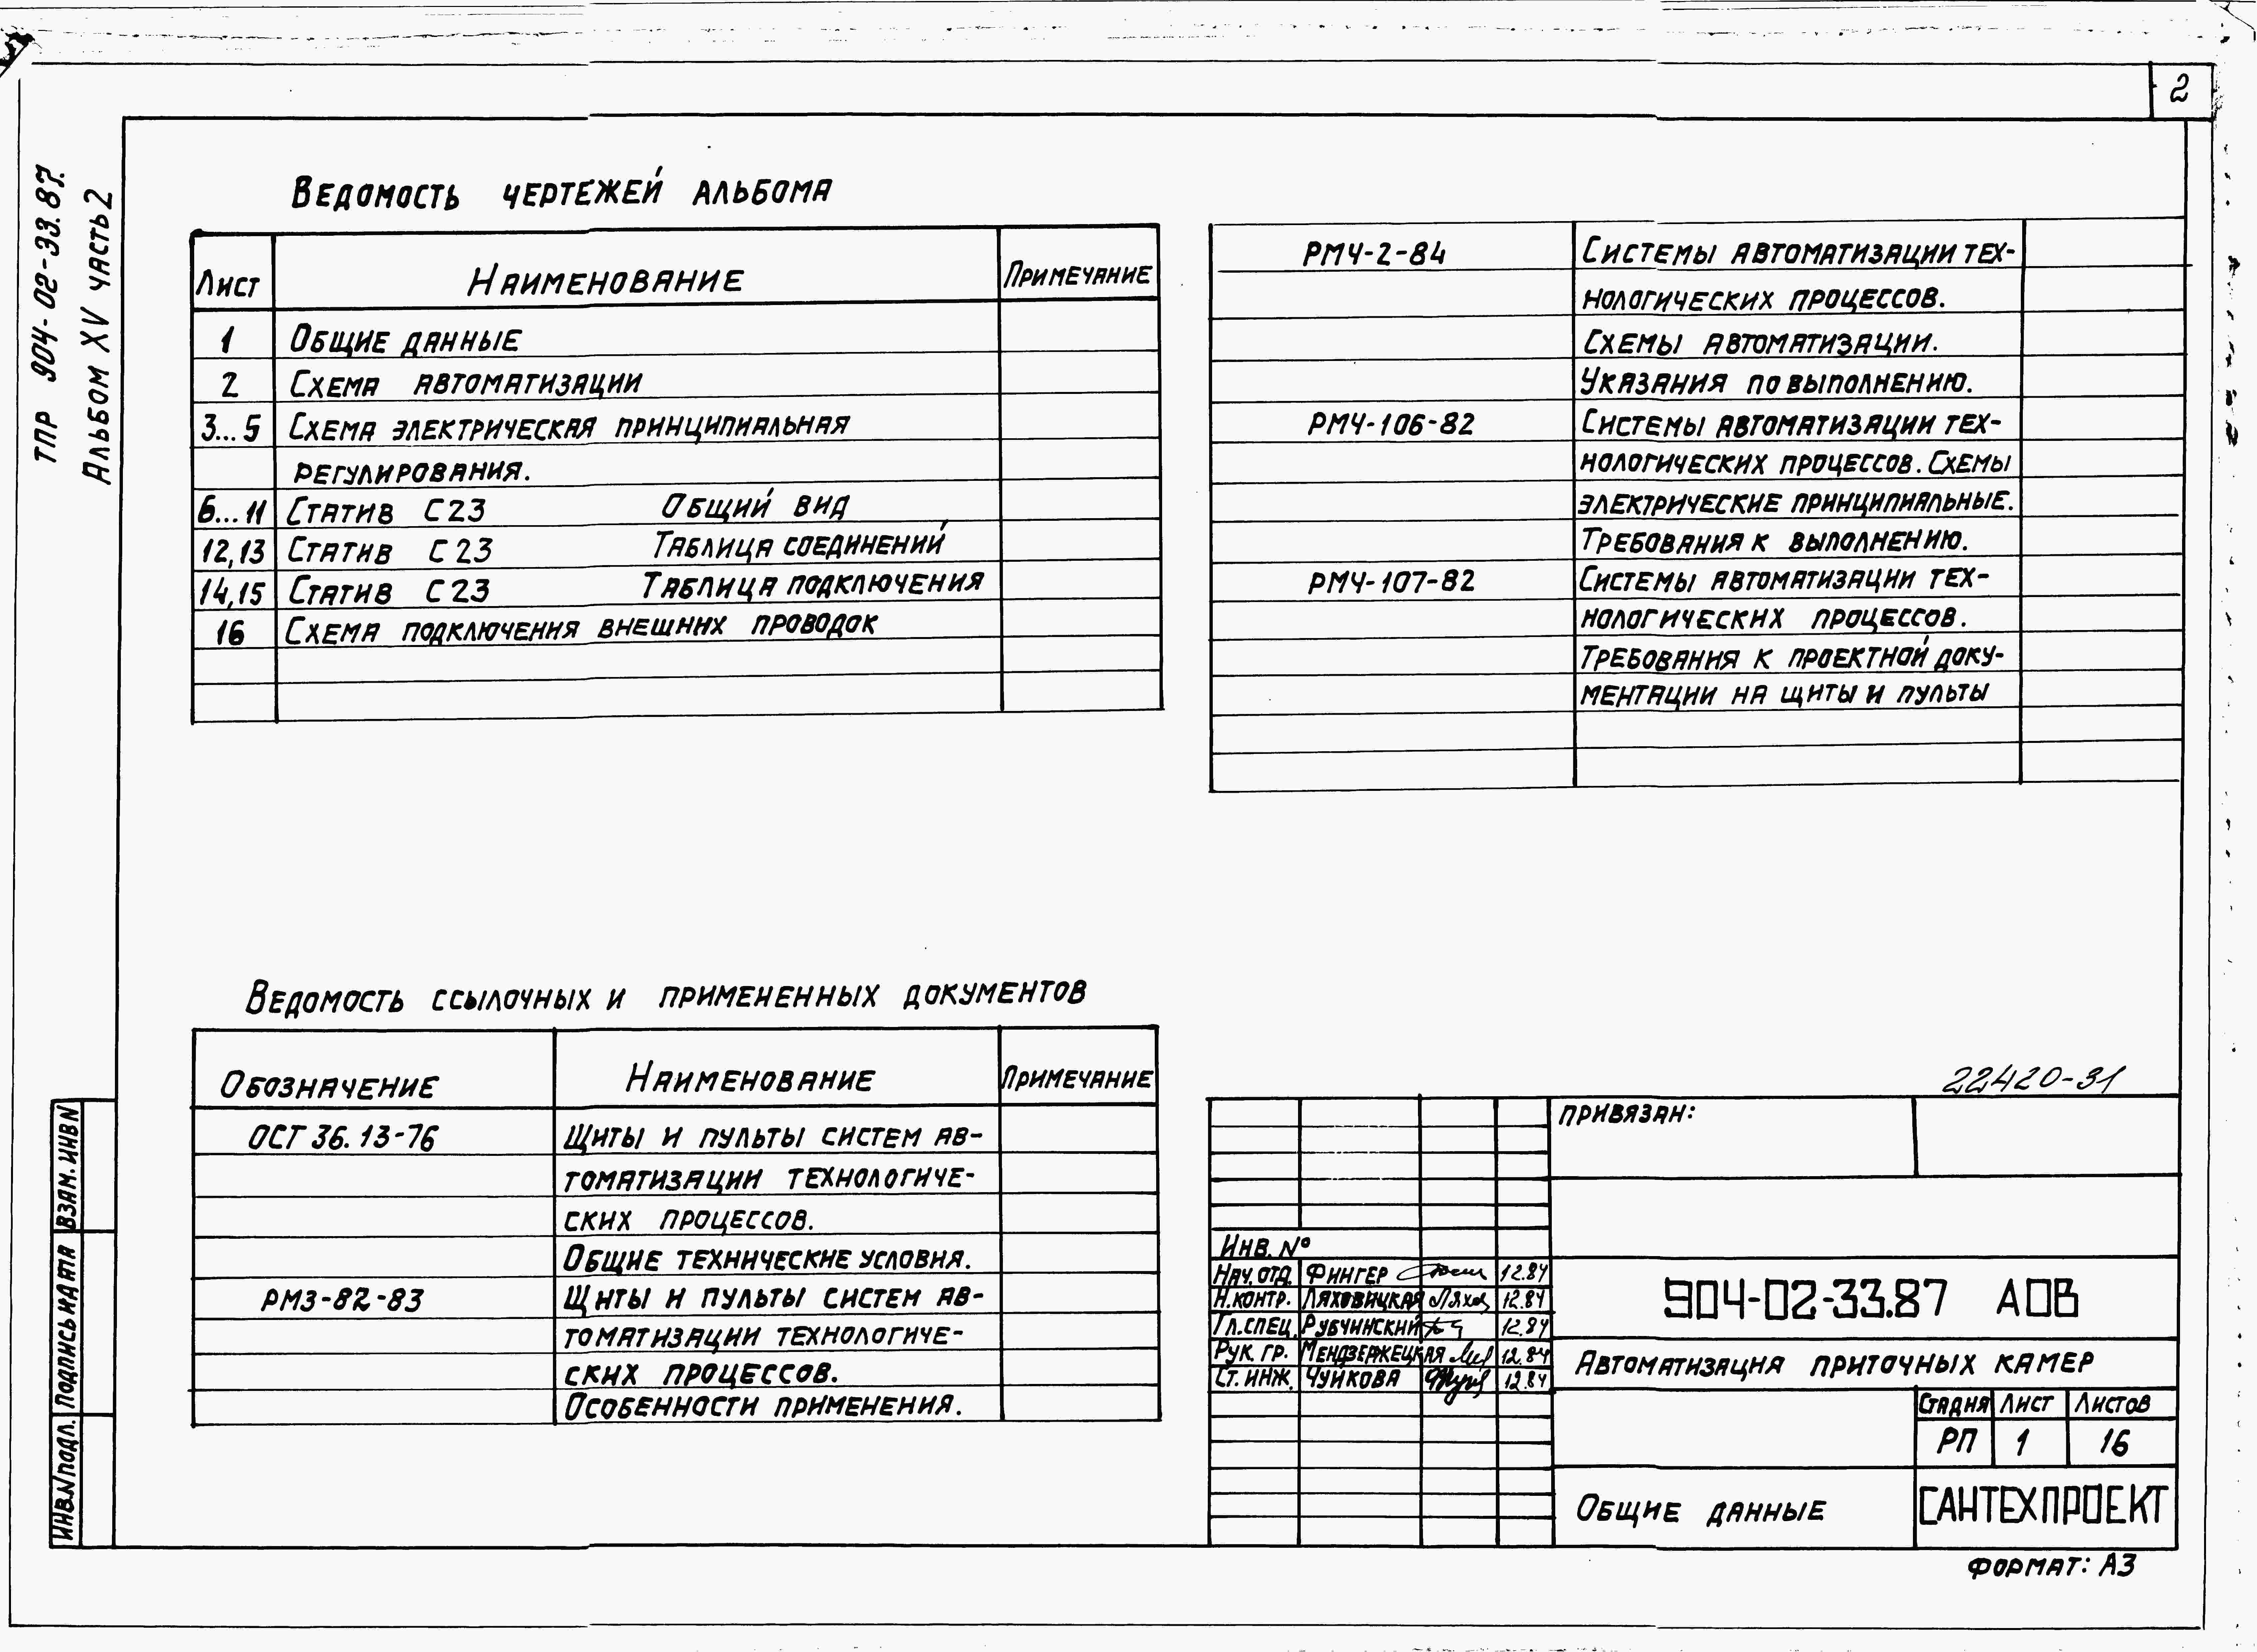 2
ТПР 904-02-33.87.
Альбом XV часть 2
Ведомость чертежей альбома
Лист Наименование Примечание
1 Общие данные
2 Схема автоматизации
3...5 Схема электрическая принципиальная
регулирования.
6...11 Статив С23 Общий вид
12,13 Статив С23 Таблица соединений
14,15 Статив С23 Таблица подключения
16 Схема подключения внешних проводок
РМ4-2-84 Системы автоматизации тех-
нологических процессов.
Схемы автоматизации.
Указания по выполнению.
РМ4-106-82 Системы автоматизации тех-
нологических процессов. Схемы
электрические принципиальные.
Требования к выполнению.
РМ4-107-82 Системы автоматизации тех-
нологических процессов.
Требования к проектной доку-
ментации на щиты и пульты
Ведомость ссылочных и примененных документов
Обозначение Наименование Примечание
ОСТ 36.13-76 Щиты и пульты систем ав-
томатизации технологиче-
ских процессов.
Общие технические условия.
РМ3-82-83 Щиты и пульты систем ав-
томатизации технологиче-
ских процессов.
Особенности применения.
22420-31
Привязан:
Инв. №
Нач. отд. Фингер 12.84
Н.контр. Ляховицкая 12.84
Гл.спец. Рубчинский 12.84
Рук. гр. Мендзержецкая 12.84
Ст. инж. Чуйкова 12.84
904-02-33.87 АОВ
Автоматизация приточных камер
Стадия Лист Листов
РП 1 16
Общие данные
САНТЕХПРОЕКТ
Формат: А3
Взам. инв N
Подпись и дата
Инв.N подл.